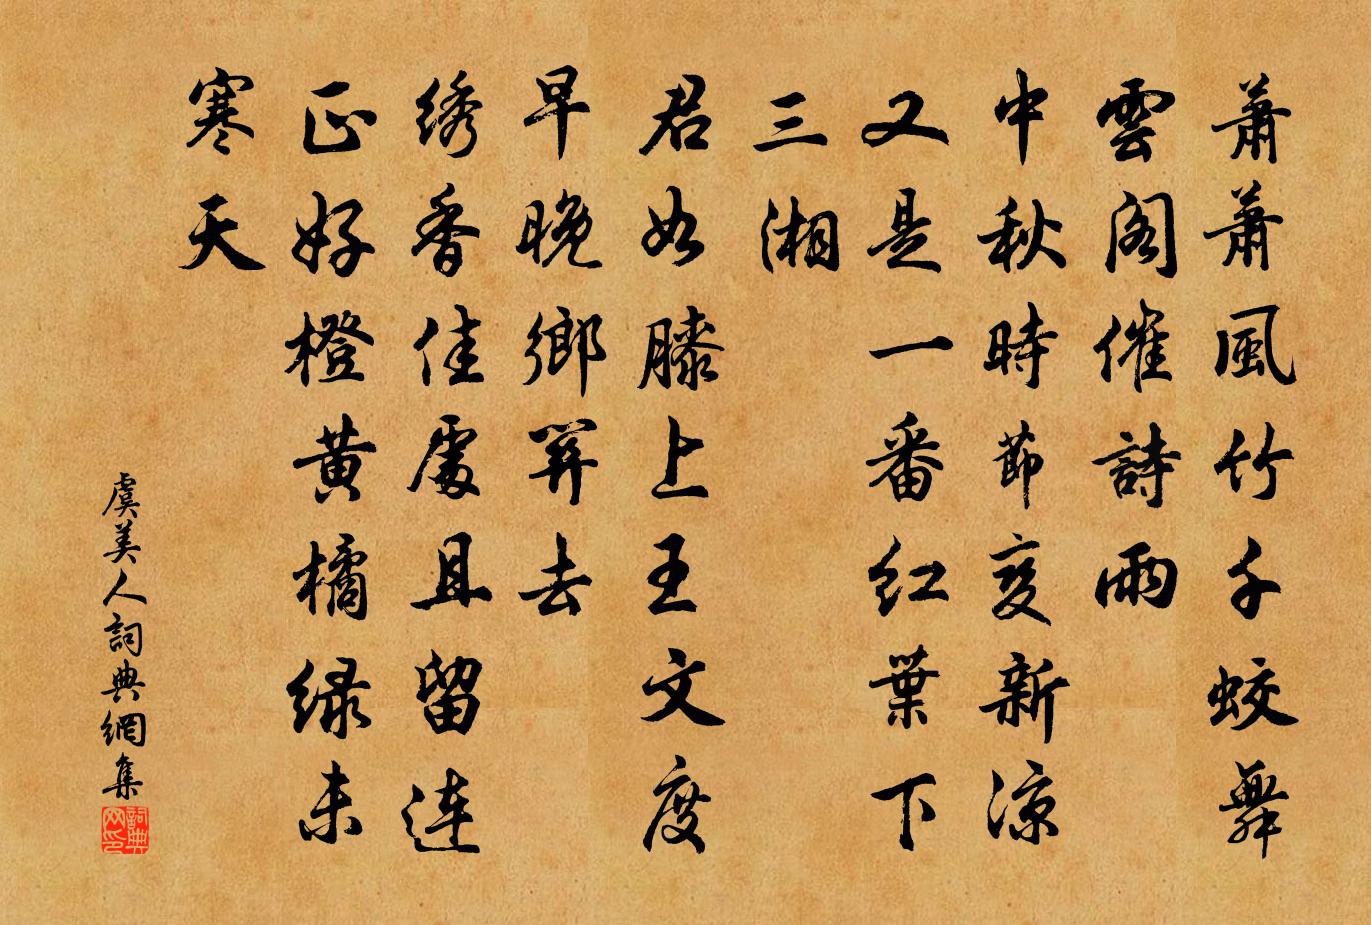 蕭蕭風竹千蛟舞
雲閣催詩雨
中秋時節变新涼
又是一番紅葉下
三湘
君如膝上王文度
早晚鄉關去
綉香佳處且留連
正好橙黃橘绿未
寒天
虞美人詞典網集
詞典网印